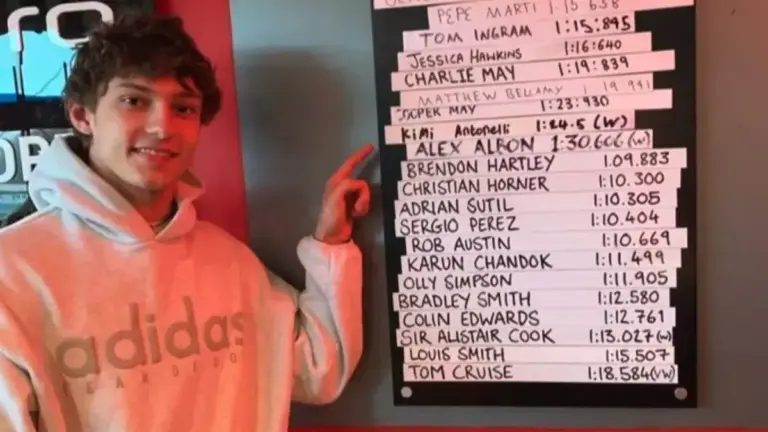 ro
PEPE MARTI 1:15 638
TOM INGRAM 1:15:895
JESSICA HAWKINS 1:16:640
CHARLIE MAY 1:19:839
MATTHEW BELLAMY 1:19 941
MAY 1:23:930
KiMi Antonelli 1:24.5 (W)
ALEX ALBON 1:30.606 (W)
BRENDON HARTLEY 1.09.883
CHRISTIAN HORNER 1:10.300
ADRIAN SUTIL 1:10.305
SERGIO PEREZ 1:10.404
ROB AUSTIN 1:10.669
KARUN CHANDOK 1:11.499
OLLY SIMPSON 1:11.905
BRADLEY SMITH 1:12.580
COLIN EDWARDS 1:12.761
SIR ALISTAIR COOK 1:13.027 (W)
LOUIS SMITH 1:15.507
TOM CRUISE 1:18.584 (VW)
adidas